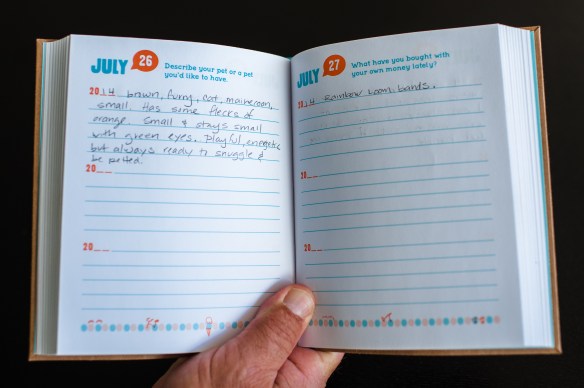 JULY 26
Describe your pet or a pet
you'd like to have.
2014 brown, furry, cat, mainecoon,
small. Has some flecks of
orange. Small & stays small
with green eyes. Playful, energetic
but always ready to snuggle &
be petted.
20__
20__
JULY 27
What have you bought with
your own money lately?
2014 Rainbow loom bands.
20__
20__